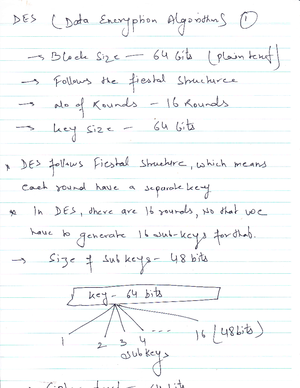 DES (Data Encryption Algorithm) ①
→ Block Size — 64 bits (plain text)
→ Follows the fiestal structure
→ No of Rounds — 16 Rounds
→ key size — 64 bits
* DES follows Fiestal structure, which means
each round have a separate key
* In DES, there are 16 rounds, so that we
have to generate 16 sub-keys for that.
→ Size of sub keys - 48 bits
key - 64 bits
1 2 3 4 ---- 16 (48 bits)
subkeys
64 bits